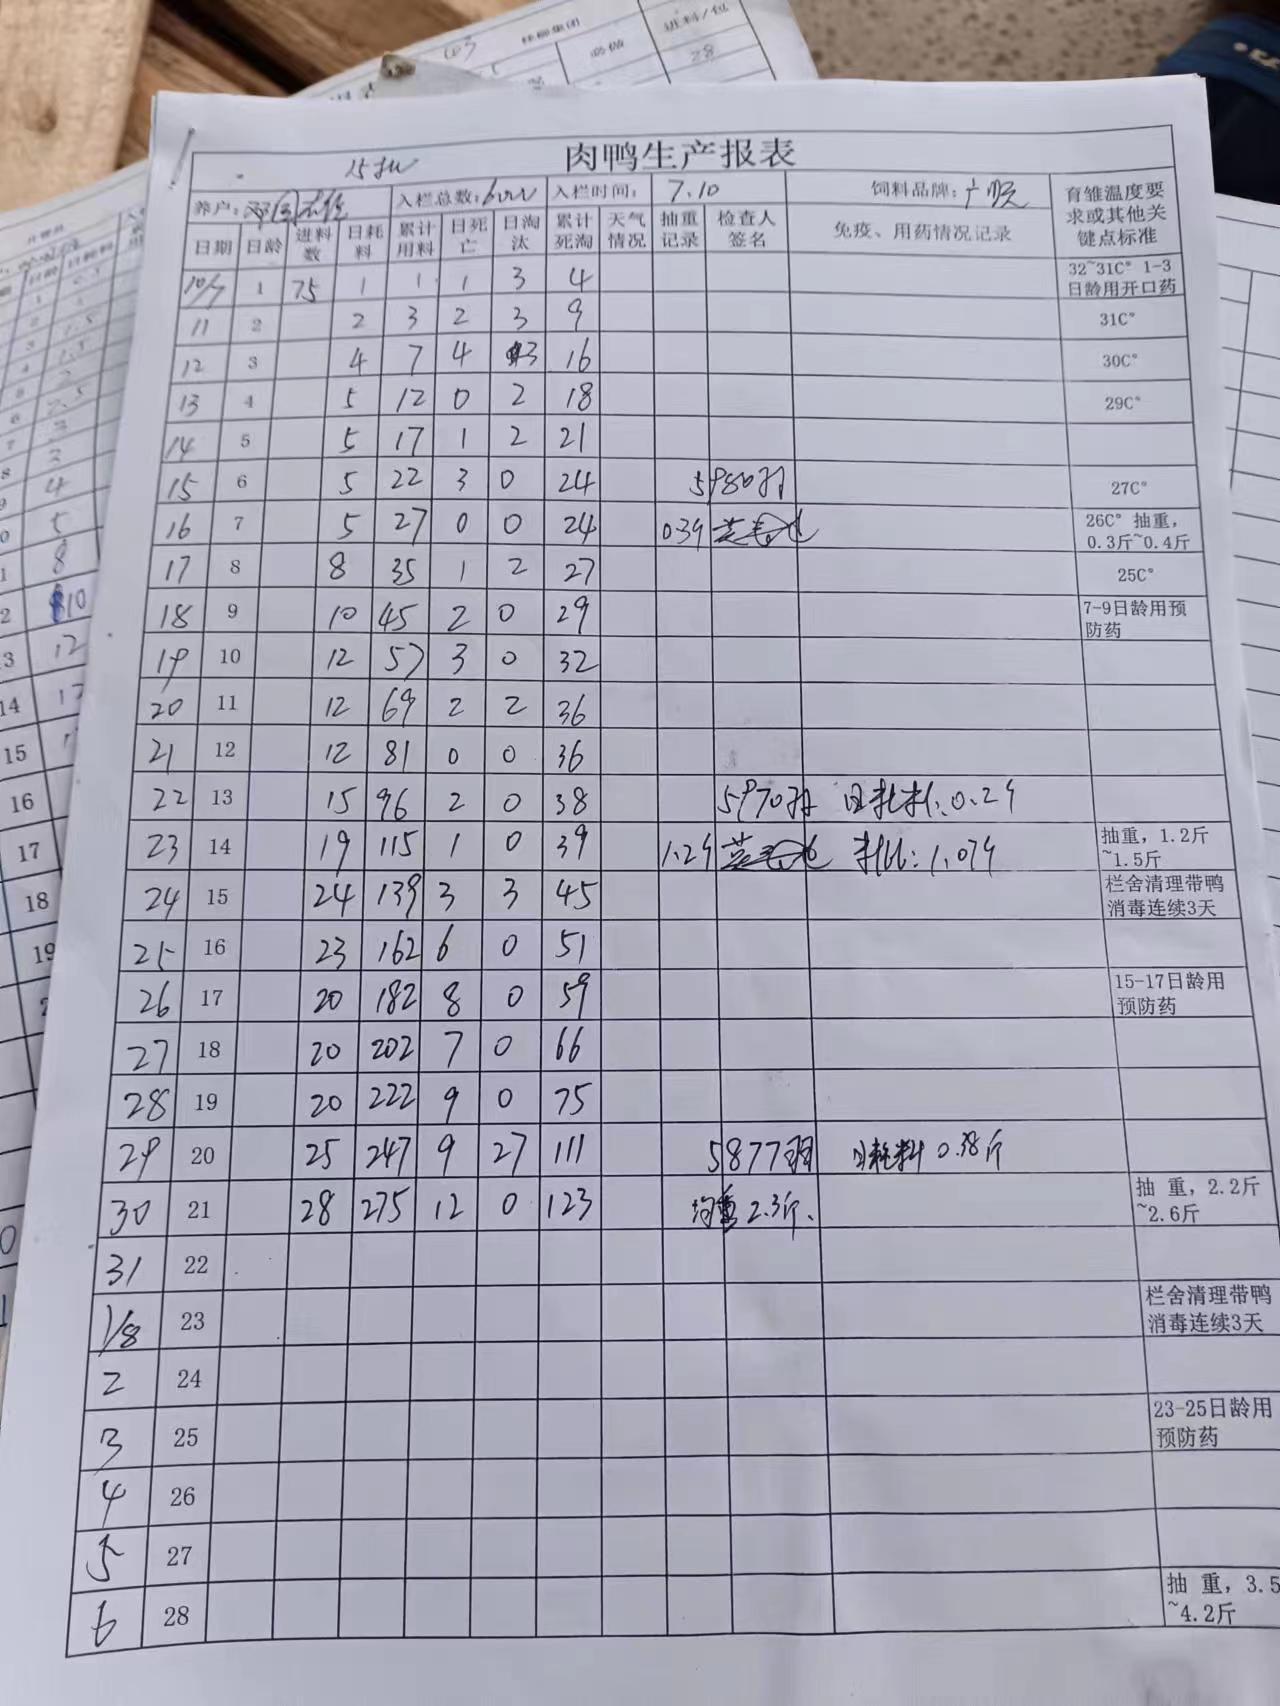 肉鸭生产报表
15批
养户： 入栏总数：6000 入栏时间： 7.10 饲料品牌：广顺 育雏温度要求或其他关键点标准
日期 日龄 进料数 日耗料 累计用料 日死亡 日淘汰 累计死淘 天气情况 抽重记录 检查人签名 免疫、用药情况记录
10/7 1 75 1 1 1 3 4 32~31C° 1-3日龄用开口药
11 2 2 3 2 3 9 31C°
12 3 4 7 4 3 16 30C°
13 4 5 12 0 2 18 29C°
14 5 5 17 1 2 21
15 6 5 22 3 0 24 5980羽 27C°
16 7 5 27 0 0 24 0.39 26C° 抽重，0.3斤~0.4斤
17 8 8 35 1 2 27 25C°
18 9 10 45 2 0 29 7-9日龄用预防药
19 10 12 57 3 0 32
20 11 12 69 2 2 36
21 12 12 81 0 0 36
22 13 15 96 2 0 38 5970羽 日耗料:0.2斤
23 14 19 115 1 0 39 1.2斤 料比:1.07 抽重，1.2斤~1.5斤
24 15 24 139 3 3 45 栏舍清理带鸭消毒连续3天
25 16 23 162 6 0 51
26 17 20 182 8 0 59 15-17日龄用预防药
27 18 20 202 7 0 66
28 19 20 222 9 0 75
29 20 25 247 9 27 111 5877羽 日耗料 0.38斤
30 21 28 275 12 0 123 均重 2.3斤. 抽 重，2.2斤~2.6斤
31 22
1/8 23 栏舍清理带鸭消毒连续3天
2 24
3 25 23-25日龄用预防药
4 26
5 27
6 28 抽 重，3.5~4.2斤